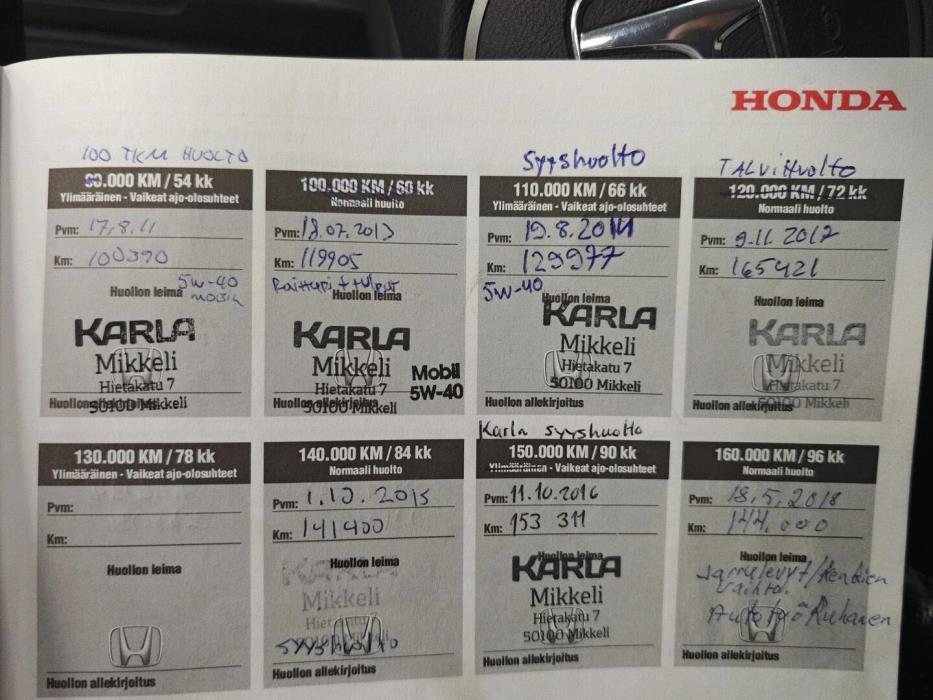 HONDA
100 TKM HUOLTO
90.000 KM / 54 kk
Ylimääräinen - Vaikeat ajo-olosuhteet
Pvm: 17.8.11
Km: 100390
Huollon leima
5W-40
MOBIL
KARLA
Mikkeli
Hietakatu 7
50100 Mikkeli
Huollon allekirjoitus
100.000 KM / 60 kk
Normaali huolto
Pvm: 18.07.2013
Km: 119905
Huollon leima
KARLA
Mikkeli
Hietakatu 7
50100 Mikkeli
Mobil
5W-40
Huollon allekirjoitus
Syyshuolto
110.000 KM / 66 kk
Ylimääräinen - Vaikeat ajo-olosuhteet
Pvm: 19.8.2014
Km: 129977
5W-40
Huollon leima
KARLA
Mikkeli
Hietakatu 7
50100 Mikkeli
Huollon allekirjoitus
TALVIHUOLTO
120.000 KM / 72 kk
Normaali huolto
Pvm: 9.11.2017
Km: 165421
Huollon leima
KARLA
Mikkeli
Hietakatu 7
50100 Mikkeli
Huollon allekirjoitus
130.000 KM / 78 kk
Ylimääräinen - Vaikeat ajo-olosuhteet
Pvm:
Km:
Huollon leima
Huollon allekirjoitus
140.000 KM / 84 kk
Normaali huolto
Pvm: 1.10.2015
Km: 141400
Huollon leima
KARLA
Mikkeli
Hietakatu 7
50100 Mikkeli
syyshuolto
Huollon allekirjoitus
Karla syyshuolto
150.000 KM / 90 kk
Ylimääräinen - Vaikeat ajo-olosuhteet
Pvm: 11.10.2016
Km: 153 311
Huollon leima
KARLA
Mikkeli
Hietakatu 7
50100 Mikkeli
Huollon allekirjoitus
160.000 KM / 96 kk
Normaali huolto
Pvm: 18.5.2018
Km: 144.000
Huollon leima
Jarrulevyt/Renkien
vaihto.
Autotyö
Huollon allekirjoitus